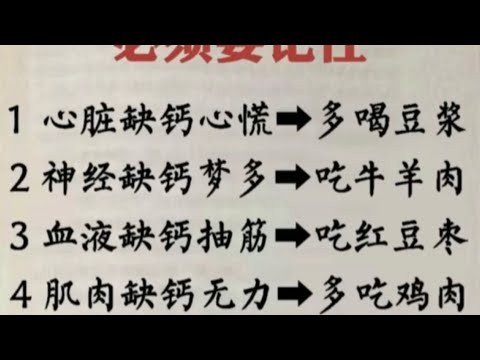 必须要记住
1 心脏缺钙心慌➡多喝豆浆
2 神经缺钙梦多➡吃牛羊肉
3 血液缺钙抽筋➡吃红豆枣
4 肌肉缺钙无力➡多吃鸡肉